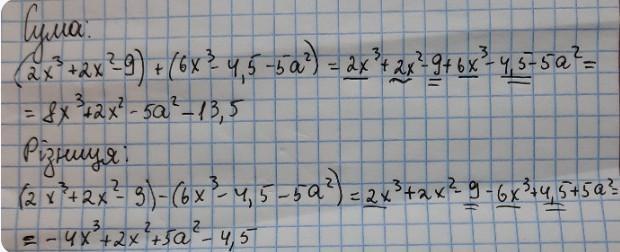 Сума:
(2x³+2x²-9)+(6x³-4,5-5a²)=2x³+2x²-9+6x³-4,5-5a²=
=8x³+2x²-5a²-13,5
Різниця:
(2x³+2x²-9)-(6x³-4,5-5a²)=2x³+2x²-9-6x³+4,5+5a²=
=-4x³+2x²+5a²-4,5